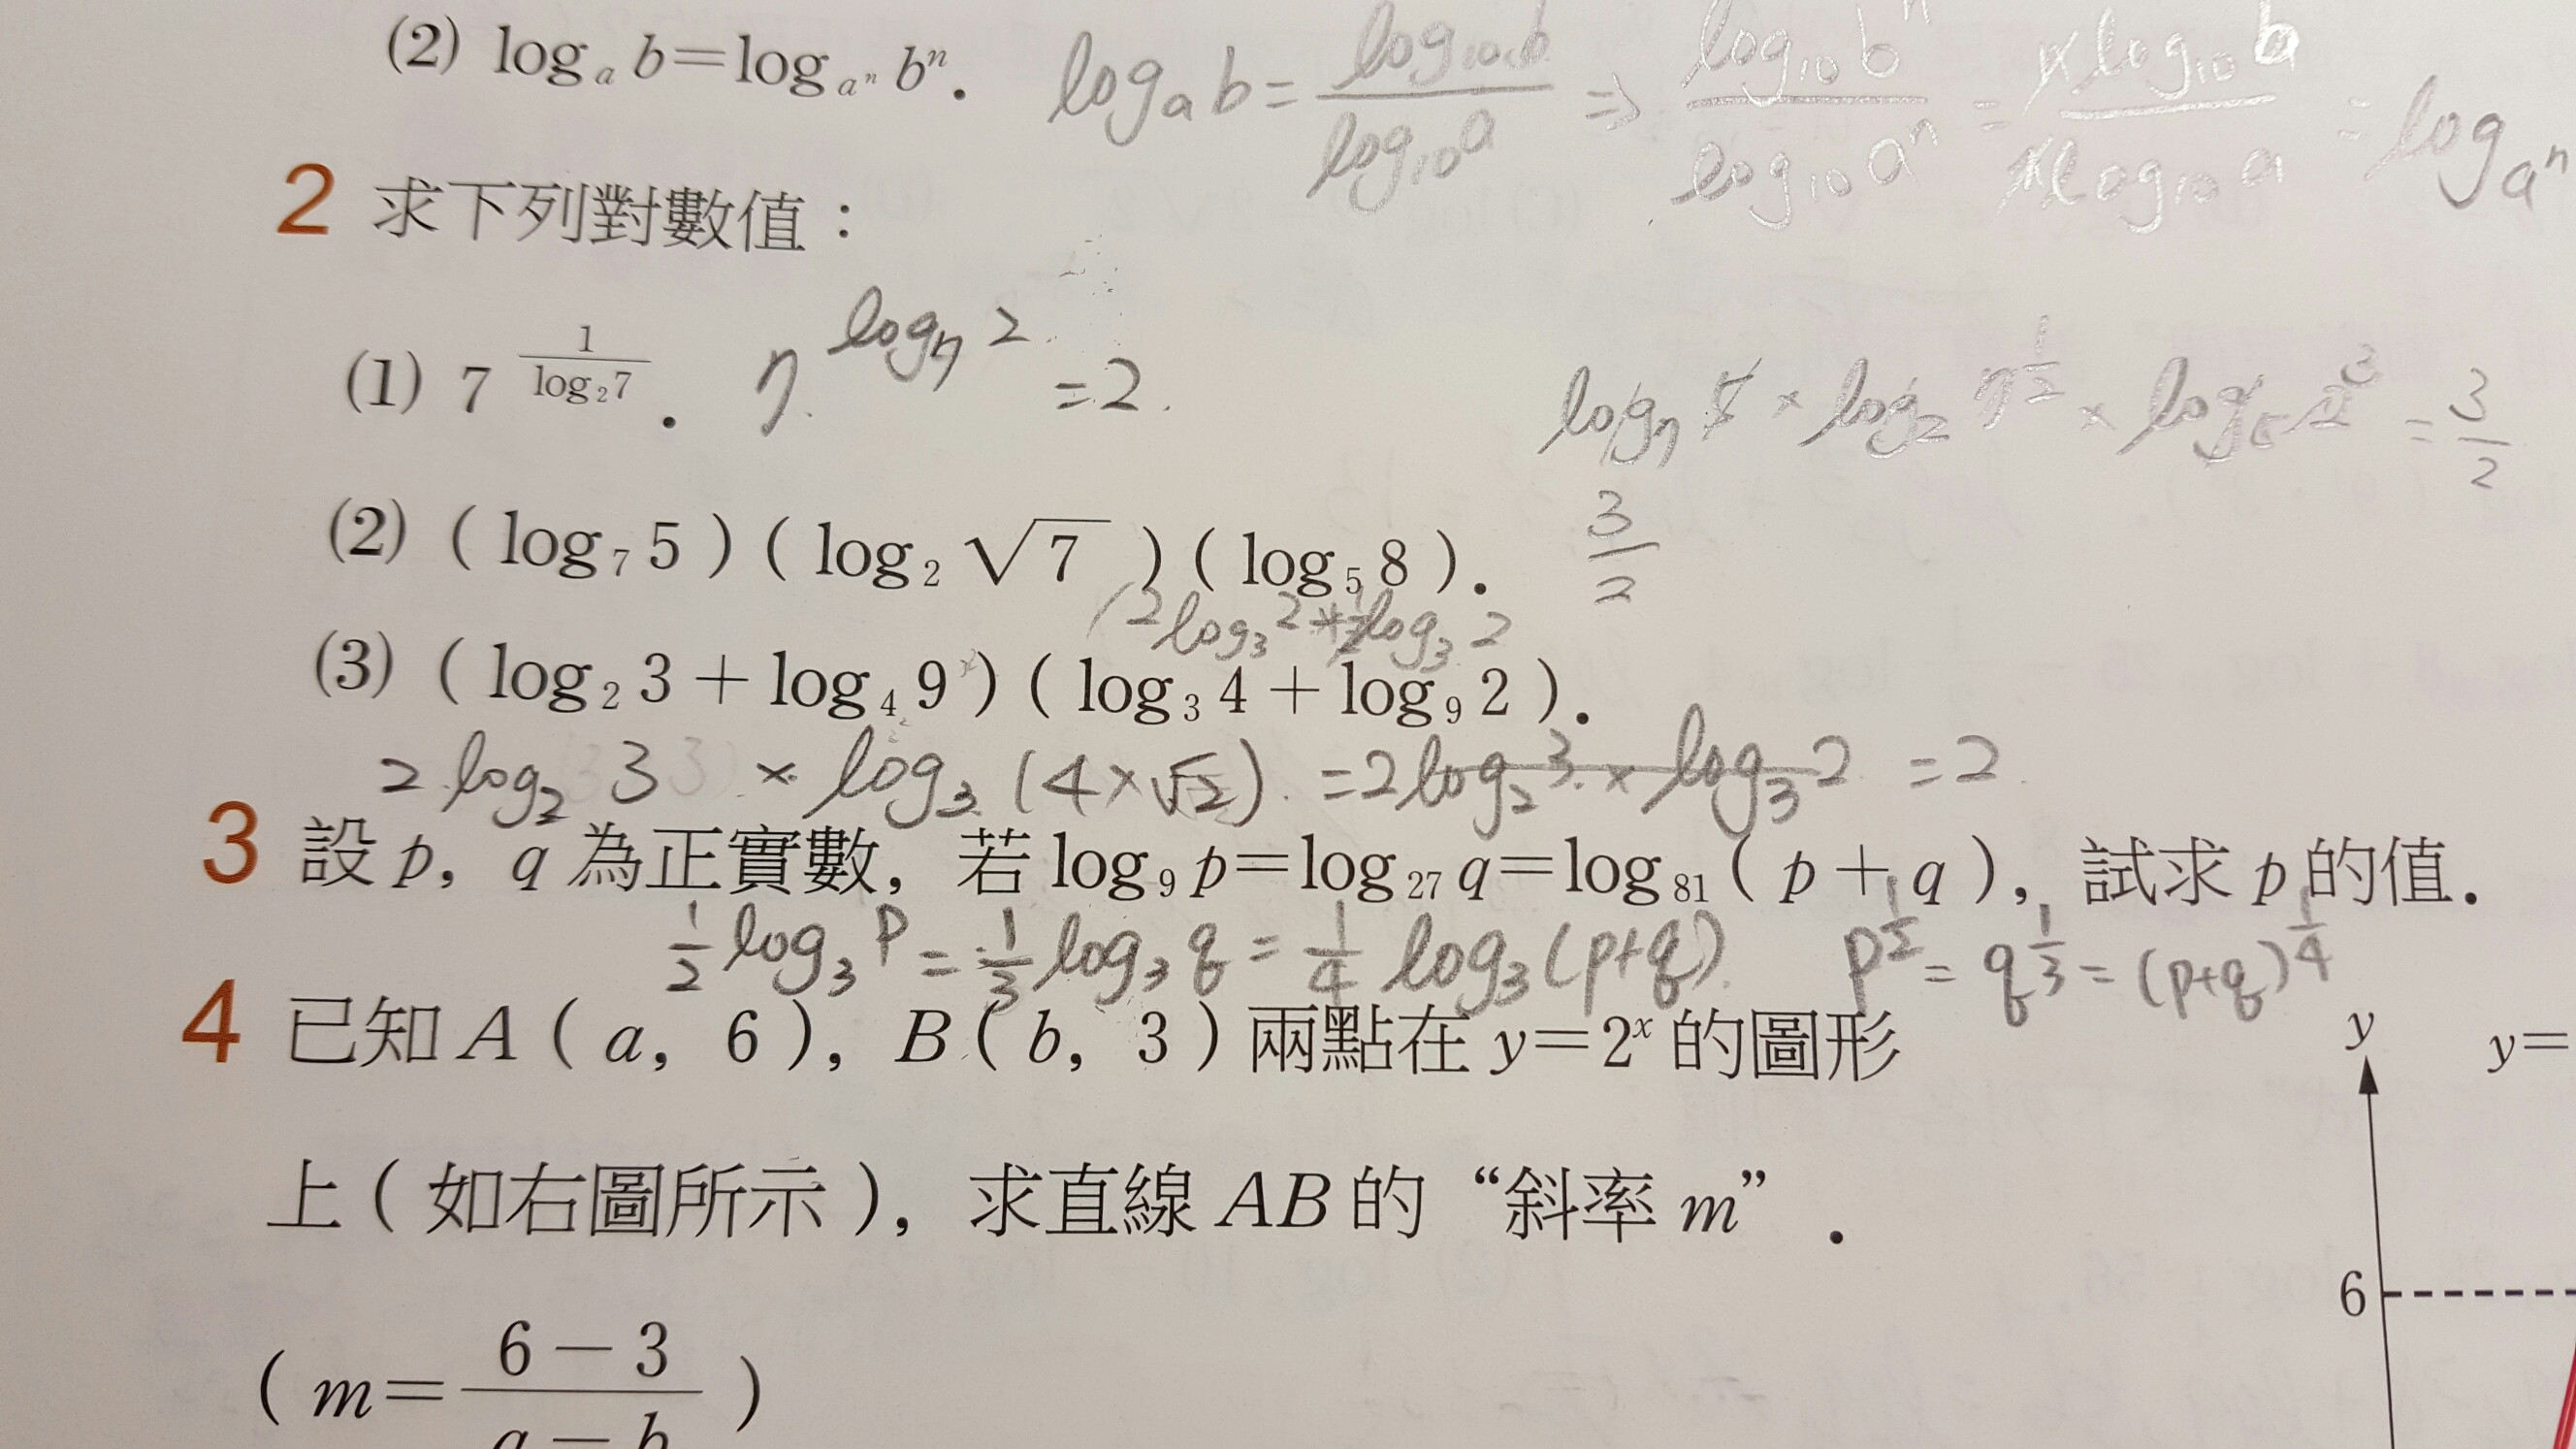 (2) log_a b＝log_{a^n} b^n． log_a b = log_10 b / log_10 a ⇒ log_10 b^n / log_10 a^n = n log_10 b / n log_10 a = log_{a^n}
2 求下列對數值：
(1) 7^{1/log_2 7}． 7^{log_7 2} = 2.
log_7 5 × log_2 7^{1/2} × log_5 2^3 = 3/2
(2) (log_7 5)(log_2 √7)(log_5 8)． 3/2
(2 log_3 2 + 1/2 log_3 2
(3) (log_2 3＋log_4 9)(log_3 4＋log_9 2)．
2 log_2 3 × log_3 (4×√2) = 2 log_2 3 × log_3 2 = 2
3 設 p，q 為正實數，若 log_9 p＝log_27 q＝log_81 (p＋q)，試求 p 的值．
1/2 log_3 P = 1/3 log_3 q = 1/4 log_3 (p+q) p^{1/2} = q^{1/3} = (p+q)^{1/4}
4 已知 A (a，6)，B (b，3) 兩點在 y＝2^x 的圖形
y y＝
上 (如右圖所示)，求直線 AB 的 “斜率 m”．
6
(m＝(6－3)/(a－b))